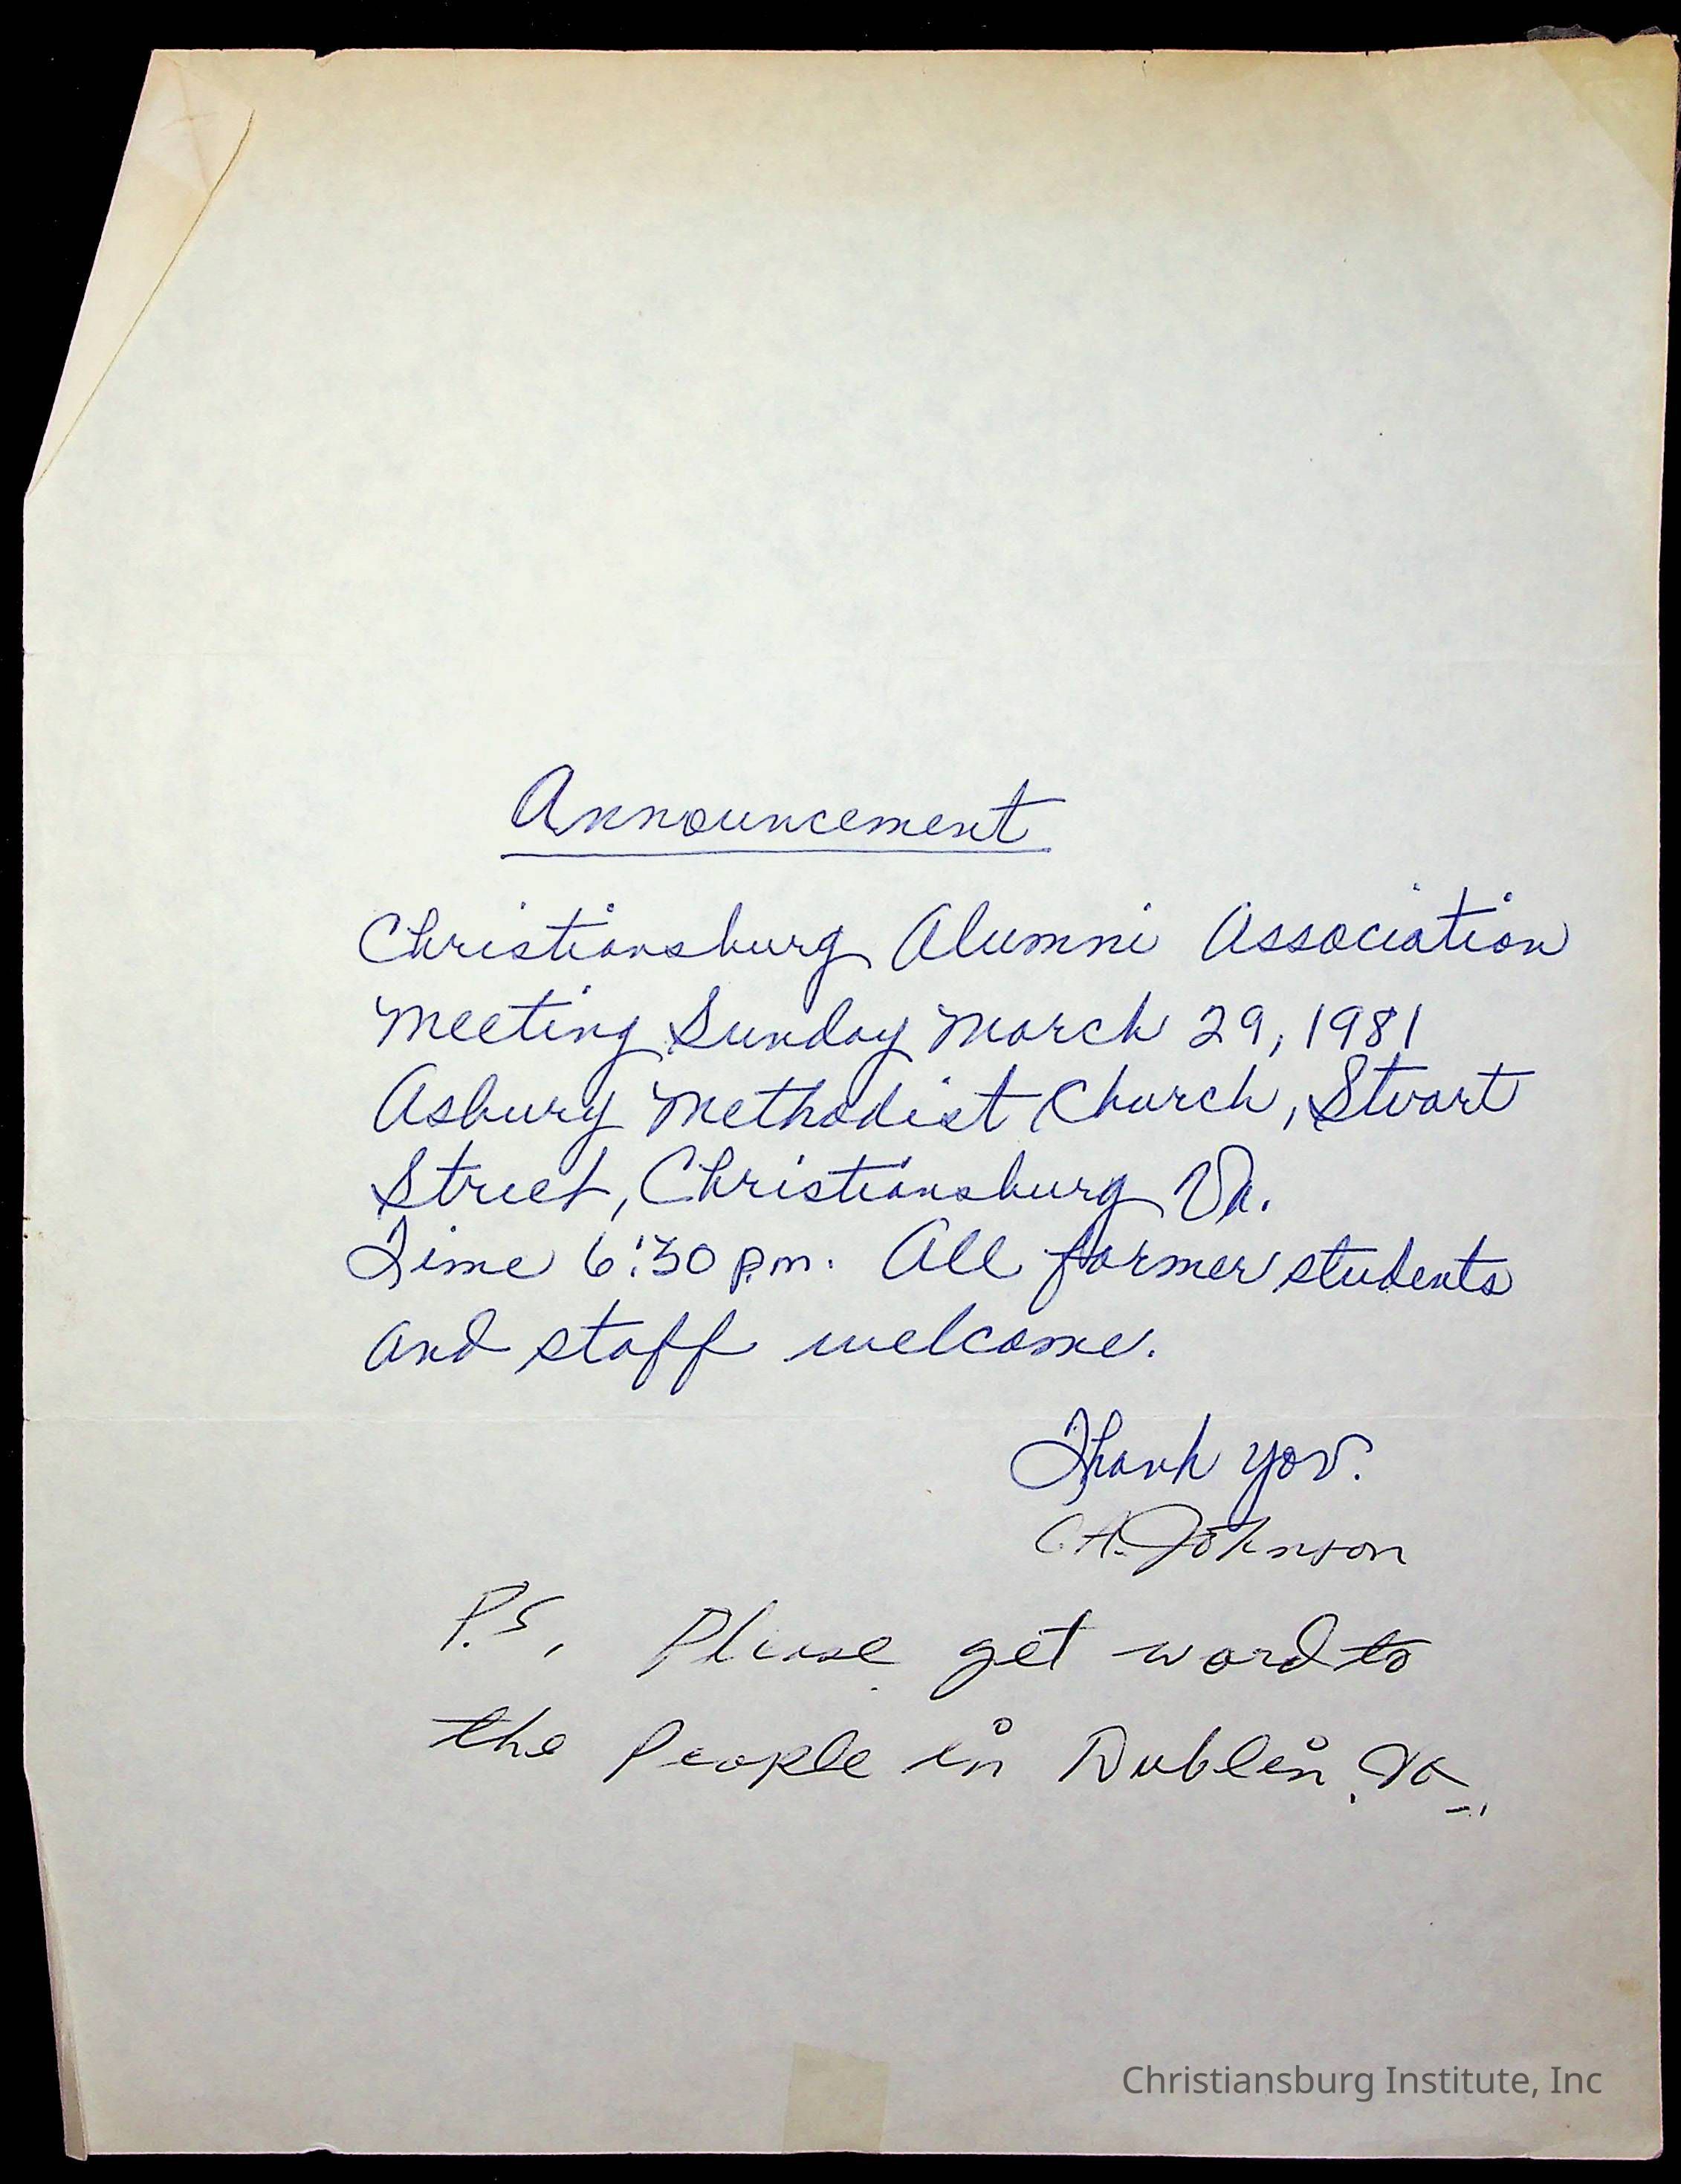 Announcement
Christiansburg Alumni Association
Meeting Sunday March 29, 1981
Asbury Methodist Church, Stuart
Street, Christiansburg Va.
Time 6:30 p.m. All former students
and staff welcome.
Thank you.
C.A. Johnson
P.S, Please get word to
the People in Dublin, Va.
Christiansburg Institute, Inc